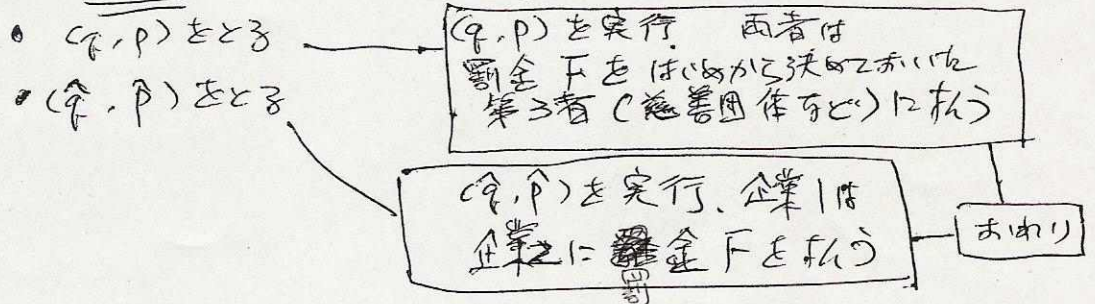 • (q, p) をとる
(q, p) を実行. 両者は
罰金 F を はじめから決めておいた
第3者 (慈善団体など) に払う
• (q̂, p̂) をとる
(q̂, p̂) を実行、企業1は
企業2に 罰金 F を払う
おわり